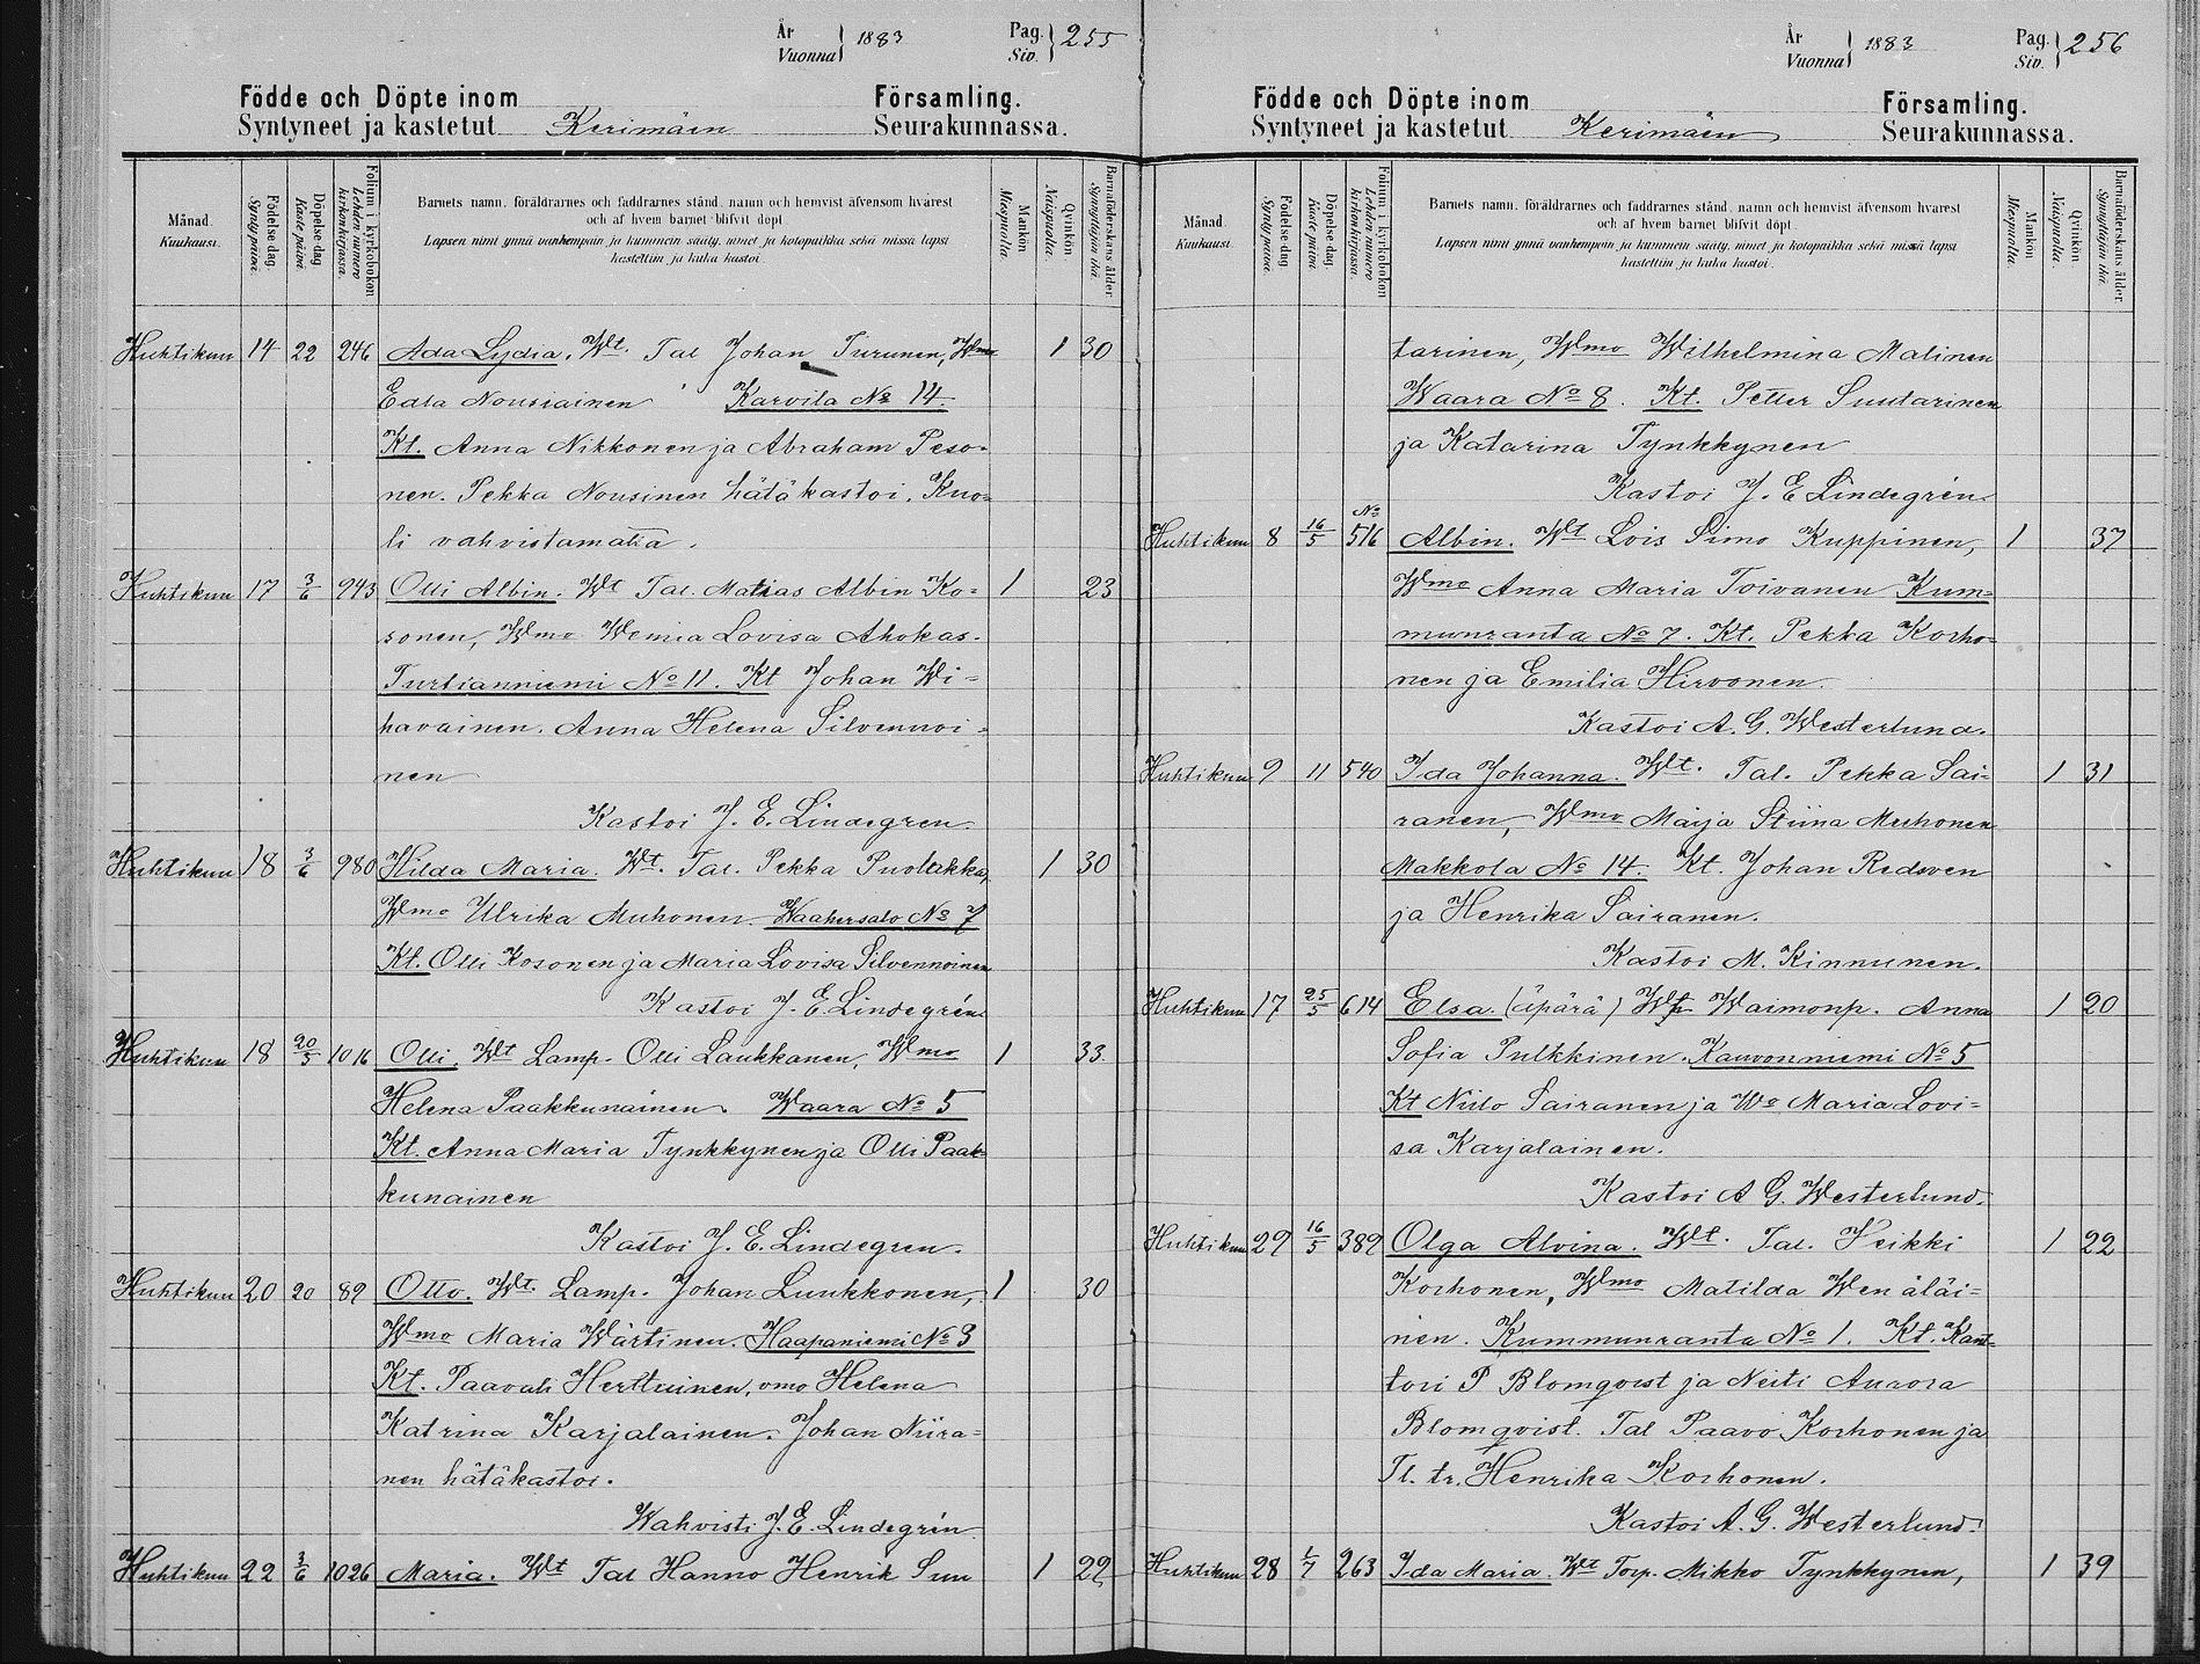 År
Vuonna 1883
Pag.
Siv. 255
Födde och Döpte inom Församling.
Syntyneet ja kastetut Kerimäen Seurakunnassa.
Månad.
Kuukausi.
Födelse dag.
Synty päivä.
Döpelse dag
Kaste päivä.
Folium i kyrkoboken
Lehden numero
kirkonkirjassa.
Barnets namn, föräldrarnes och faddrarnes stånd, namn och hemvist äfvensom hvarest
och af hvem barnet blifvit döpt.
Lapsen nimi ynnä vanhempain ja kummein sääty, nimet ja kotopaikka sekä missä lapsi
kastettiin ja kuka kastoi
Mankön
Miespuolta.
Qvinkön
Naispuolta.
Barnaföderskans ålder
Synnyttäjän ikä.
Huhtikuu 14 22 246 Ada Lydia. Wt. Tal Johan Turunen, Wmo 1 30
Edla Nousiainen Karvila No 14.
Kt. Anna Nikkonen ja Abraham Peso-
nen. Pekka Nousinen hätäkastoi. Kuo-
li vahvistamatta.
Huhtikuu 17 3/6 943 Olli Albin. Wt Tal. Matias Albin Ko- 1 23
sonen, Wmo Wemia Lovisa Ahokas.
Turtianniemi No 11. Kt Johan Wi-
havainen. Anna Helena Silvennoi-
nen
Kastoi J. E. Lindegren.
Huhtikuu 18 3/6 980 Hilda Maria. Wt. Tal. Pekka Puolakka, 1 30
Wmo Ulrika Muhonen. Waahersalo No 7
Kt. Olli Kosonen ja Maria Lovisa Silvennoinen
Kastoi J. E. Lindegrén
Huhtikuu 18 20/5 1016 Olli. Wt Lamp. Olli Laukkanen, Wmo 1 33.
Helena Paakkunainen. Waara No 5
Kt. Anna Maria Tynkkynen ja Olli Paak-
kunainen
Kastoi J. E. Lindegren.
Huhtikuu 20 20 89 Otto. Wt. Lamp. Johan Luukkonen, 1 30
Wmo Maria Wärtinen. Haapaniemi No 3
Kt. Paavali Herttuinen, omo Helena
Katrina Karjalainen. Johan Niira-
nen hätäkastoi.
Wahvisti J. E. Lindegrén
Huhtikuu 22 3/6 1026 Maria. Wt Tal Hanno Henrik Suu 1 22
År
Vuonna 1883
Pag.
Siv. 256
Födde och Döpte inom Församling.
Syntyneet ja kastetut Kerimäen Seurakunnassa.
Månad.
Kuukausi.
Födelse dag
Synty päivä.
Döpelse dag.
Kaste päivä.
Folium i kyrkoboken
Lehden numero
kirkonkirjassa.
Barnets namn, föräldrarnes och faddrarnes stånd, namn och hemvist äfvensom hvarest
och af hvem barnet blifvit döpt.
Lapsen nimi ynnä vanhempain ja kummein sääty, nimet ja kotopaikka sekä missä lapsi
kastettiin ja kuka kastoi.
Mankön
Miespuolta.
Qvinkön
Naispuolta.
Barnaföderskans ålder
Synnyttäjän ikä.
tarinen, Wmo Wilhelmina Malinen
Waara No 8. Kt. Petter Suutarinen
ja Katarina Tynkkynen
Kastoi J. E Lindegrén
No
Huhtikuu 8 16/5 516 Albin. Wt Lois Simo Kuppinen, 1 37
Wmo Anna Maria Toivanen Kum-
munranta No 7. Kt. Pekka Korho-
nen ja Emilia Hirvonen.
Kastoi A. G. Westerlund.
Huhtikuu 9 11 540 Ida Johanna. Wt. Tal. Pekka Sai- 1 31
ranen, Wmo Maija Stiina Muhonen
Makkola No 14. Kt. Johan Redsven
ja Henrika Sairanen.
Kastoi M. Kinnunen.
Huhtikuu 17 25/5 614 Elsa. (äpärä) Waimonp. Anna 1 20
Sofia Pulkkinen. Kauvonniemi No 5
Kt Niilo Sairanen ja Wo Maria Lovi-
sa Karjalainen.
Kastoi A G. Westerlund.
Huhtikuu 29 16/5 389 Olga Alvina. Wt. Tal. Heikki 1 22
Korhonen, Wmo Matilda Wenäläi-
nen. Kummunranta No 1. Kt. Kant-
tori P Blomqvist ja Neiti Aurora
Blomqvist. Tal Paavo Korhonen ja
Tl. tr. Henrika Korhonen.
Kastoi A. G. Westerlund.
Huhtikuu 28 1/7 263 Ida Maria. Wt Torp. Mikko Tynkkynen, 1 39